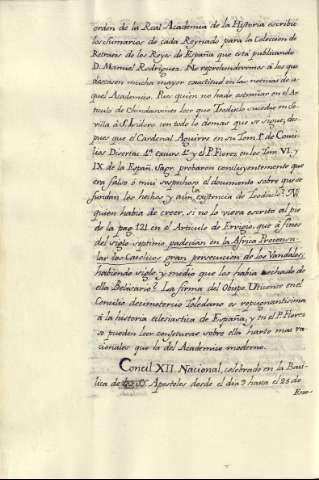 orden de la Real Academia de la Historia escribió
los sumarios de cada Reynado para la Coleccion de
Retratos de los Reyes de España que está publicando
D. Manuel Rodriguez. No reprehenderémos á los que
deséasen mucha mayor exactitud en las noticias de a-
quel Academico. Pues quien no hade estrañar en el Ar-
ticulo de Chindasvinto leer que Teodisclo sucedio en Se-
villa á S. Isidoro con todo lo demas que se sigue, des-
pues que el Cardenal Aguirre en su Tom. 1º de Conci-
lios Disertac. 1ª excurs. 4º y el P. Florez en los Tom. VI, y
IX. de la Españ. Sagr. probaron concluyentemente que
era falso ó mui sospechoso el documento sobre que se
fundan los hechos y aun la existencia de Teodisclo? Ni
quien habia de creer, si no lo viera escrito al pie
de la pag. 121 en el Articulo de Ervigio, que á fines
del siglo septimo padecian en la Africa Proconsu-
lar los Catolicos gran persecucion de los Vandalos,
habiendo siglo y medio que los habia echado de
ella Belisario? La firma del Obispo Uticense en el
Concilio decimotercio Toledano es repugnantisima
á la historia eclesiastica de España, y en el P. Florez
se pueden leer conjeturas sobre ella harto mas ra-
cionales que la del Academico moderno.
Concil XII Nacional, celebrado en la Basi-
lica de los SS. Apostoles desde el dia 9 hasta el 25 de
Ene-